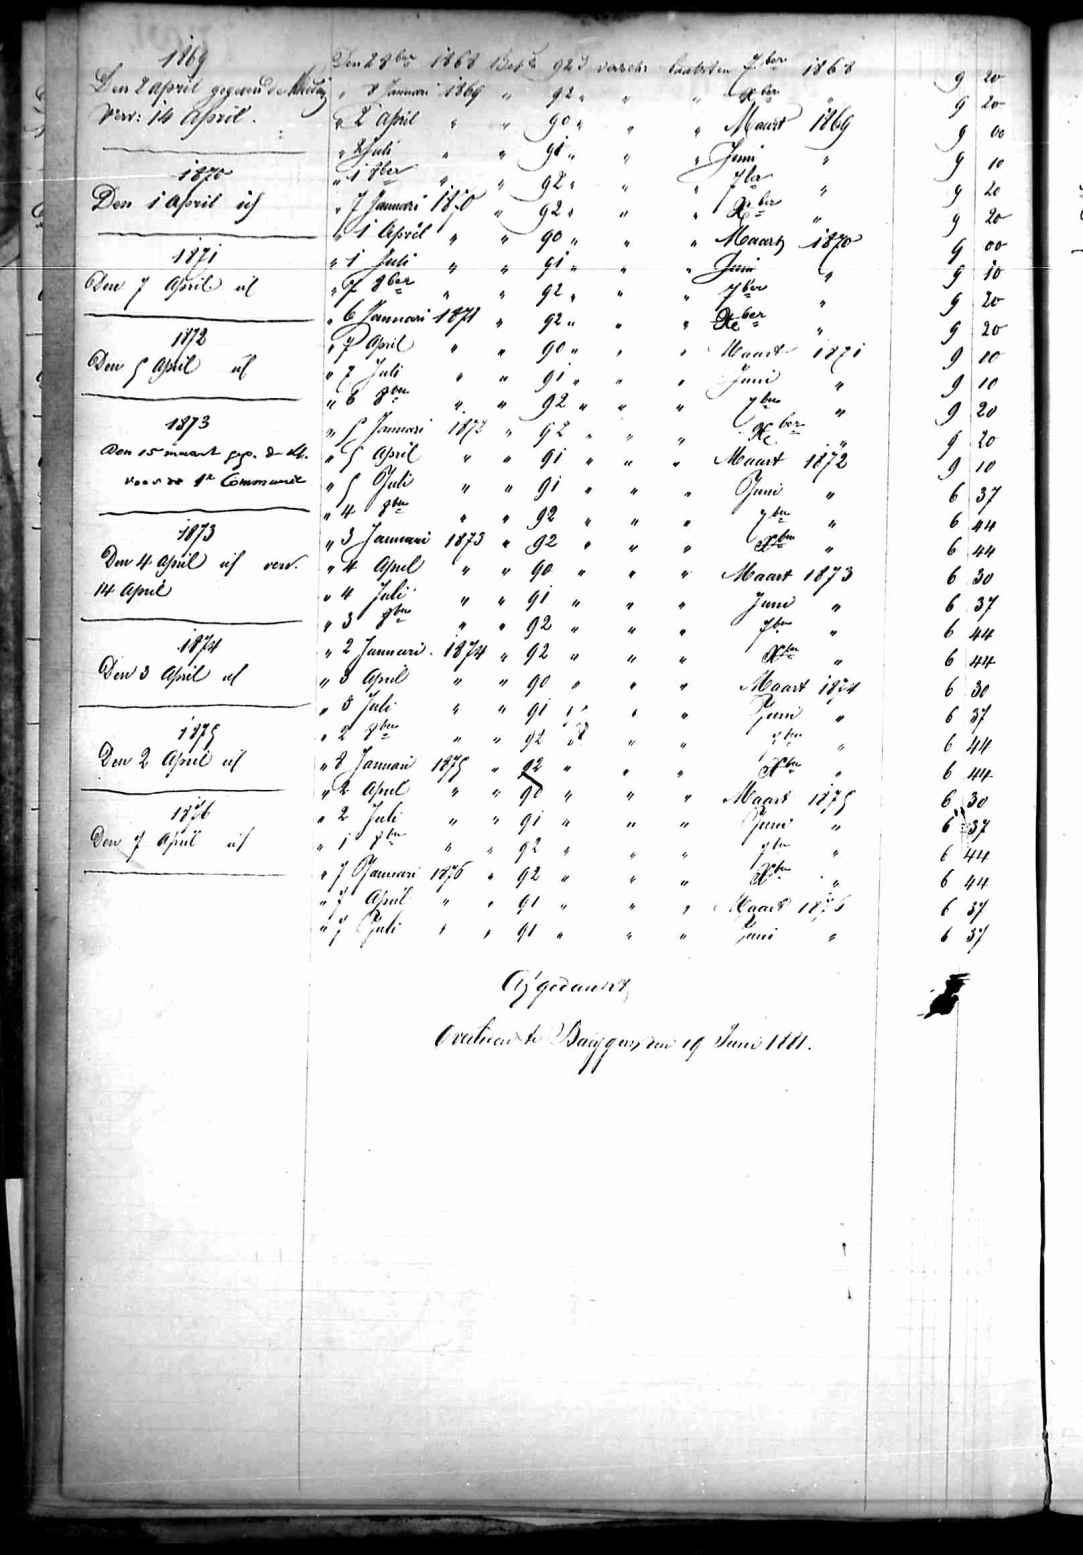 1869
Den 2 April gegeven de Kleeding
Verv: 14 April.
1870
Den 1 April id
1871
Den 7 April id
1872
Den 5 April id
1873
Den 15 maart geg. de kl.
voor de 1e Communie
1873
Den 4 April id verv.
14 April
1874
Den 3 April id
1875
Den 2 April id
1876
Den 7 April id
Den 2 8ber 1868 Bet. 92 d verschr laatsten 7ber 1868 9 20
" 8 Januari 1869 " 92 " " " Xber " 9 20
" 2 April " " 90 " " " Maart 1869 9 00
" 2 Juli " " 91 " " " Juni " 9 10
" 1 8ber " " 92 " " " 7ber " 9 20
" 7 Januari 1870 " 92 " " " Xber " 9 20
" 1 April " " 90 " " " Maart 1870 9 00
" 1 Juli " " 91 " " " Juni " 9 10
" 7 8ber " " 92 " " " 7ber " 9 20
" 6 Januari 1871 " 92 " " " Xber " 9 20
" 7 April " " 90 " " " Maart 1871 9 10
" 7 Juli " " 91 " " " Juni " 9 10
" 6 8ber " " 92 " " " 7ber " 9 20
" 5 Januari 1872 " 92 " " " Xber " 9 20
" 5 April " " 91 " " " Maart 1872 9 10
" 5 Juli " " 91 " " " Juni " 6 37
" 4 8ber " " 92 " " " 7ber " 6 44
" 3 Januari 1873 " 92 " " " Xber " 6 44
" 4 April " " 90 " " " Maart 1873 6 30
" 4 Juli " " 91 " " " Juni " 6 37
" 3 8ber " " 92 " " " 7ber " 6 44
" 2 Januari 1874 " 92 " " " Xber " 6 44
" 3 April " " 90 " " " Maart 1874 6 30
" 3 Juli " " 91 " " " Juni " 6 37
" 2 8ber " " 92 " " " 7ber " 6 44
" 8 Januari 1875 " 92 " " " Xber " 6 44
" 2 April " " 90 " " " Maart 1875 6 30
" 2 Juli " " 91 " " " Juni " 6 37
" 1 8ber " " 92 " " " 7ber " 6 44
" 7 Januari 1876 " 92 " " " Xber " 6 44
" 7 April " " 91 " " " Maart 1876 6 37
" 7 Juli " " 91 " " " Juni " 6 37
Afgedankt
Overleden te den 19 Juni 1881.